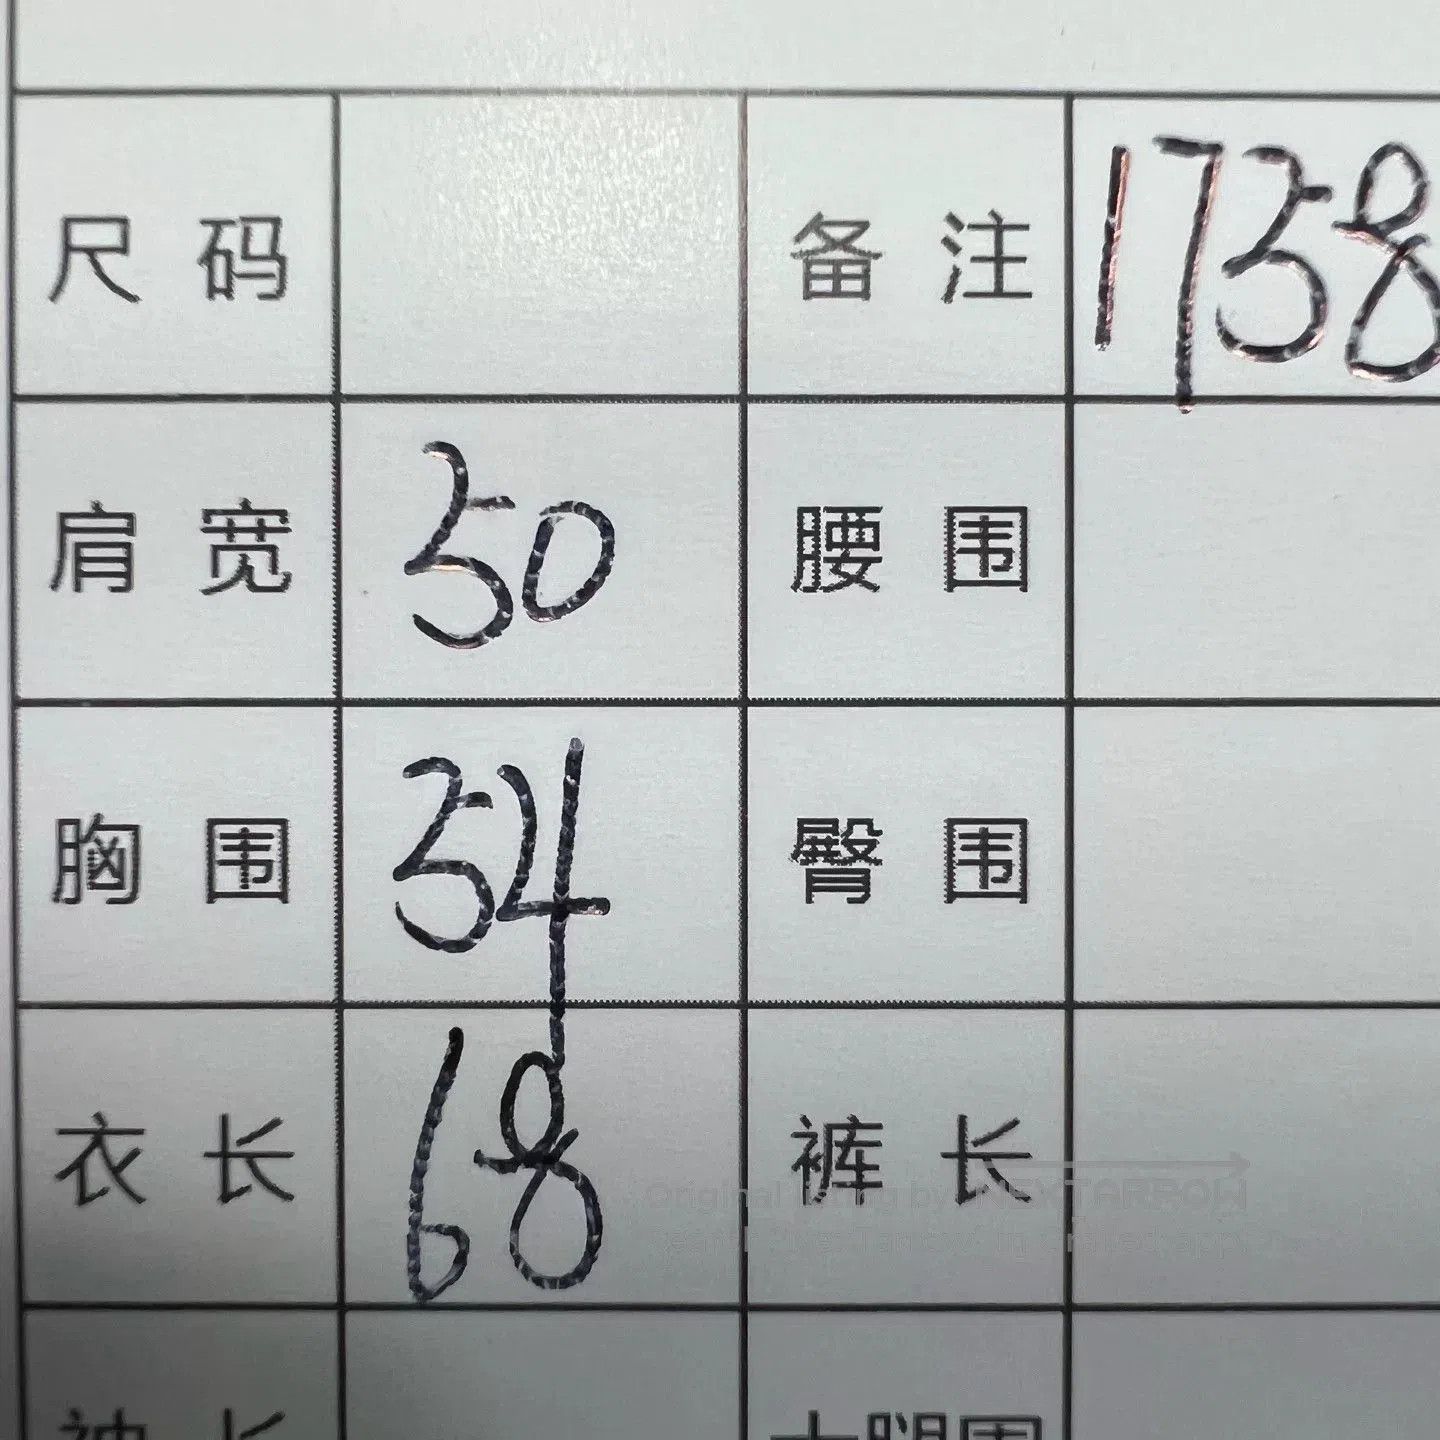 尺码 备注 1738
肩宽 50 腰围
胸围 54 臀围
衣长 68 裤长
袖长 大腿围